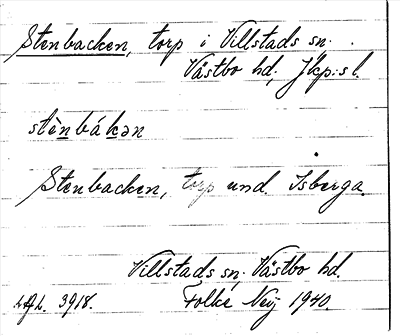 Stenbacken, torp i Villstads sn.
Västbo hd. Jkp:s l.
stènbákən
Stenbacken, torp und. Isberga.
Villstads sn. Västbo hd.
LAL. 3918. Folke Ney 1940.